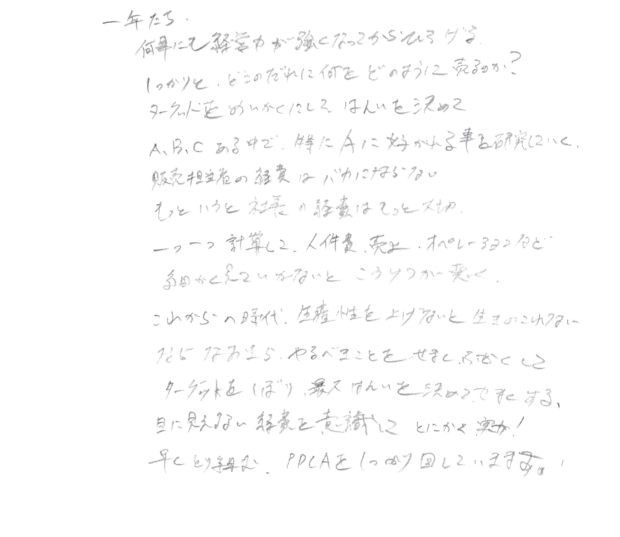 一年たち、
何年にも 経営力が強くなってからひろげる
しっかりと、どこのだれに何を どのように 売るのか?
ターゲットをめいかくにして はんいを決めて
A、B、C ある中で、特に Aに 好かれる事を研究していく、
販売担当者の経費は バカにならない
もっというと 社長の経費はもっと大切
一つ一つ 計算して、人件費、売上、オペレーションなど
細かく見ていかないと こうりつが悪く、
これからの時代、生産性を上げないと 生きのこれない
ならなおさら、やるべきことを せまく、ふかくして
ターゲットを しぼり、はんいを決めて
目に見えない 経費を意識して とにかく
早くとり組む、PDCAをしっかり回していきます。